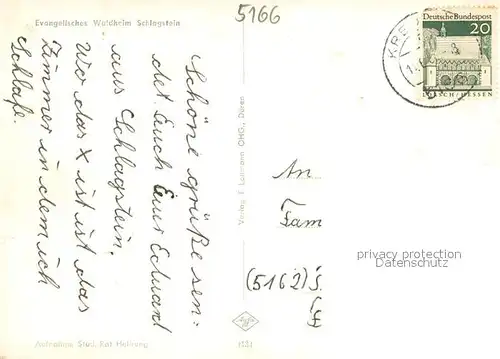 Evangelisches Waldheim Schlagstein
5166
Schöne grüße sen:
det Euch Euer Eduard
aus Schlagstein.
Wo das x ist ist das
Zimmer in dem ich
Schlafe.
Aufnahme Stud. Rat
Verlag F. OHG., Düren
Agfa
Deutsche Bundespost
20
LORSCH/HESSEN
KRE
An
Fam
(5162)
privacy protection
Datenschutz